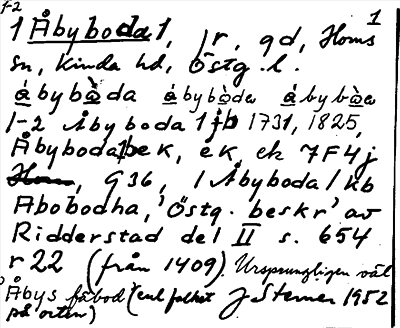 1-2 1
1 Åbyboda 1, jr, gd, Homs
sn, Kinda hd, Östg. l.
åbybòda åbybòda åbybòa
1-2 Åbyboda 1 jb 1731, 1825,
Åbyboda ek, ek, ek 7F4j
G36, 1 Åbyboda 1 kb
Abobodha, 'Östg. beskr' av
Ridderstad del II s. 654
r 22 (från 1409). Ursprungligen väl
Åbys fäbod (enl folket J Sterner 1952
på orten)